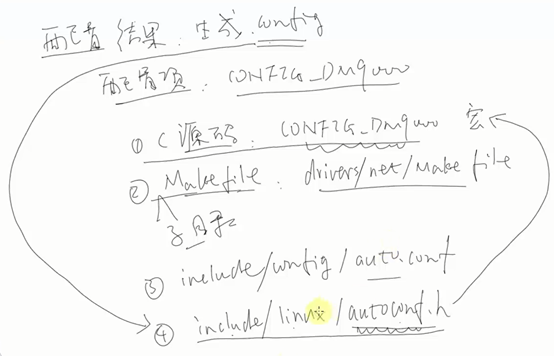 配置结果：生成.config
配置项：CONFIG_DM9000
① C源码：CONFIG_DM9000 宏
② Makefile：drivers/net/Makefile
子目录
③ include/config/auto.conf
④ include/linux/autoconf.h